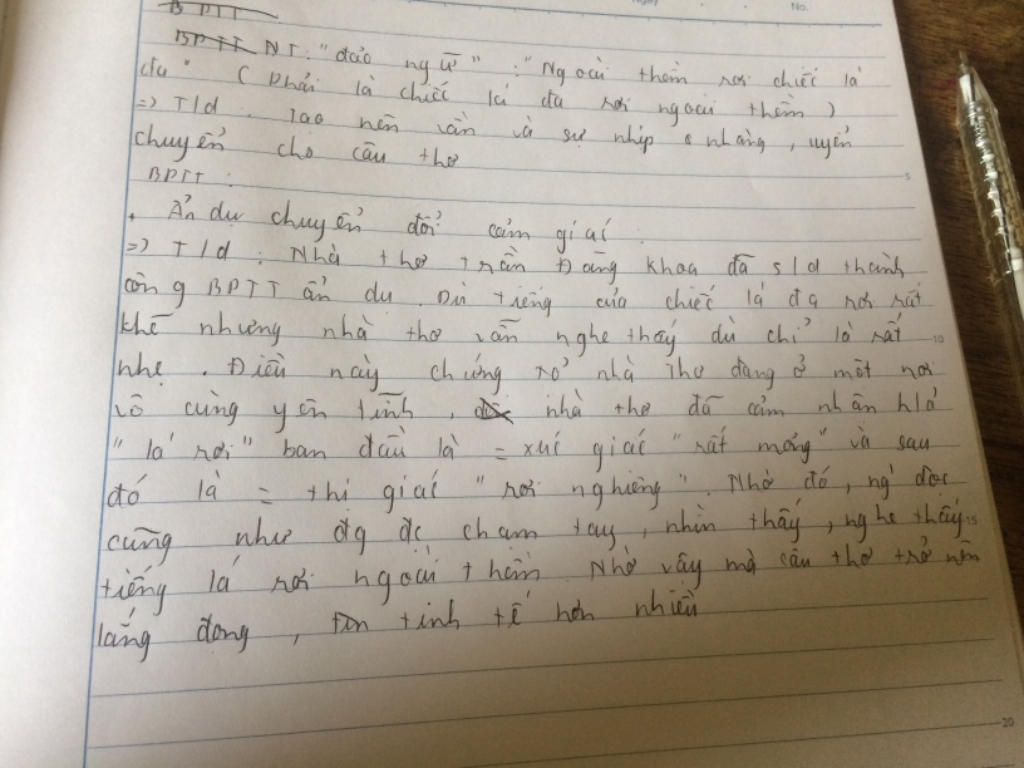 BPTT
BPTT NT: "đảo ngữ": "Ngoài thềm rơi chiếc lá
đa" (Phải là chiếc lá đa rơi ngoài thềm)
=) T/d: Tạo nên vần và sự nhịp nhàng, uyển
chuyển cho câu thơ
BPTT:
+ Ẩn dụ chuyển đổi cảm giác.
=) T/d: Nhà thơ Trần Đăng Khoa đã s/d thành
công BPTT ẩn dụ. Dù tiếng của chiếc lá đa rơi rất
khẽ nhưng nhà thơ vẫn nghe thấy dù chỉ là rất
nhẹ. Điều này chứng tỏ nhà thơ đang ở một nơi
vô cùng yên tĩnh, nhà thơ đã cảm nhận h/ả
"lá rơi" ban đầu là = xúc giác "rất mỏng" và sau
đó là = thị giác "rơi nghiêng". Nhờ đó, ng' đọc
cũng như đg đc chạm tay, nhìn thấy, nghe thấy
tiếng lá rơi ngoài thềm. Nhờ vậy mà câu thơ trở nên
lắng đọng, tinh tế hơn nhiều